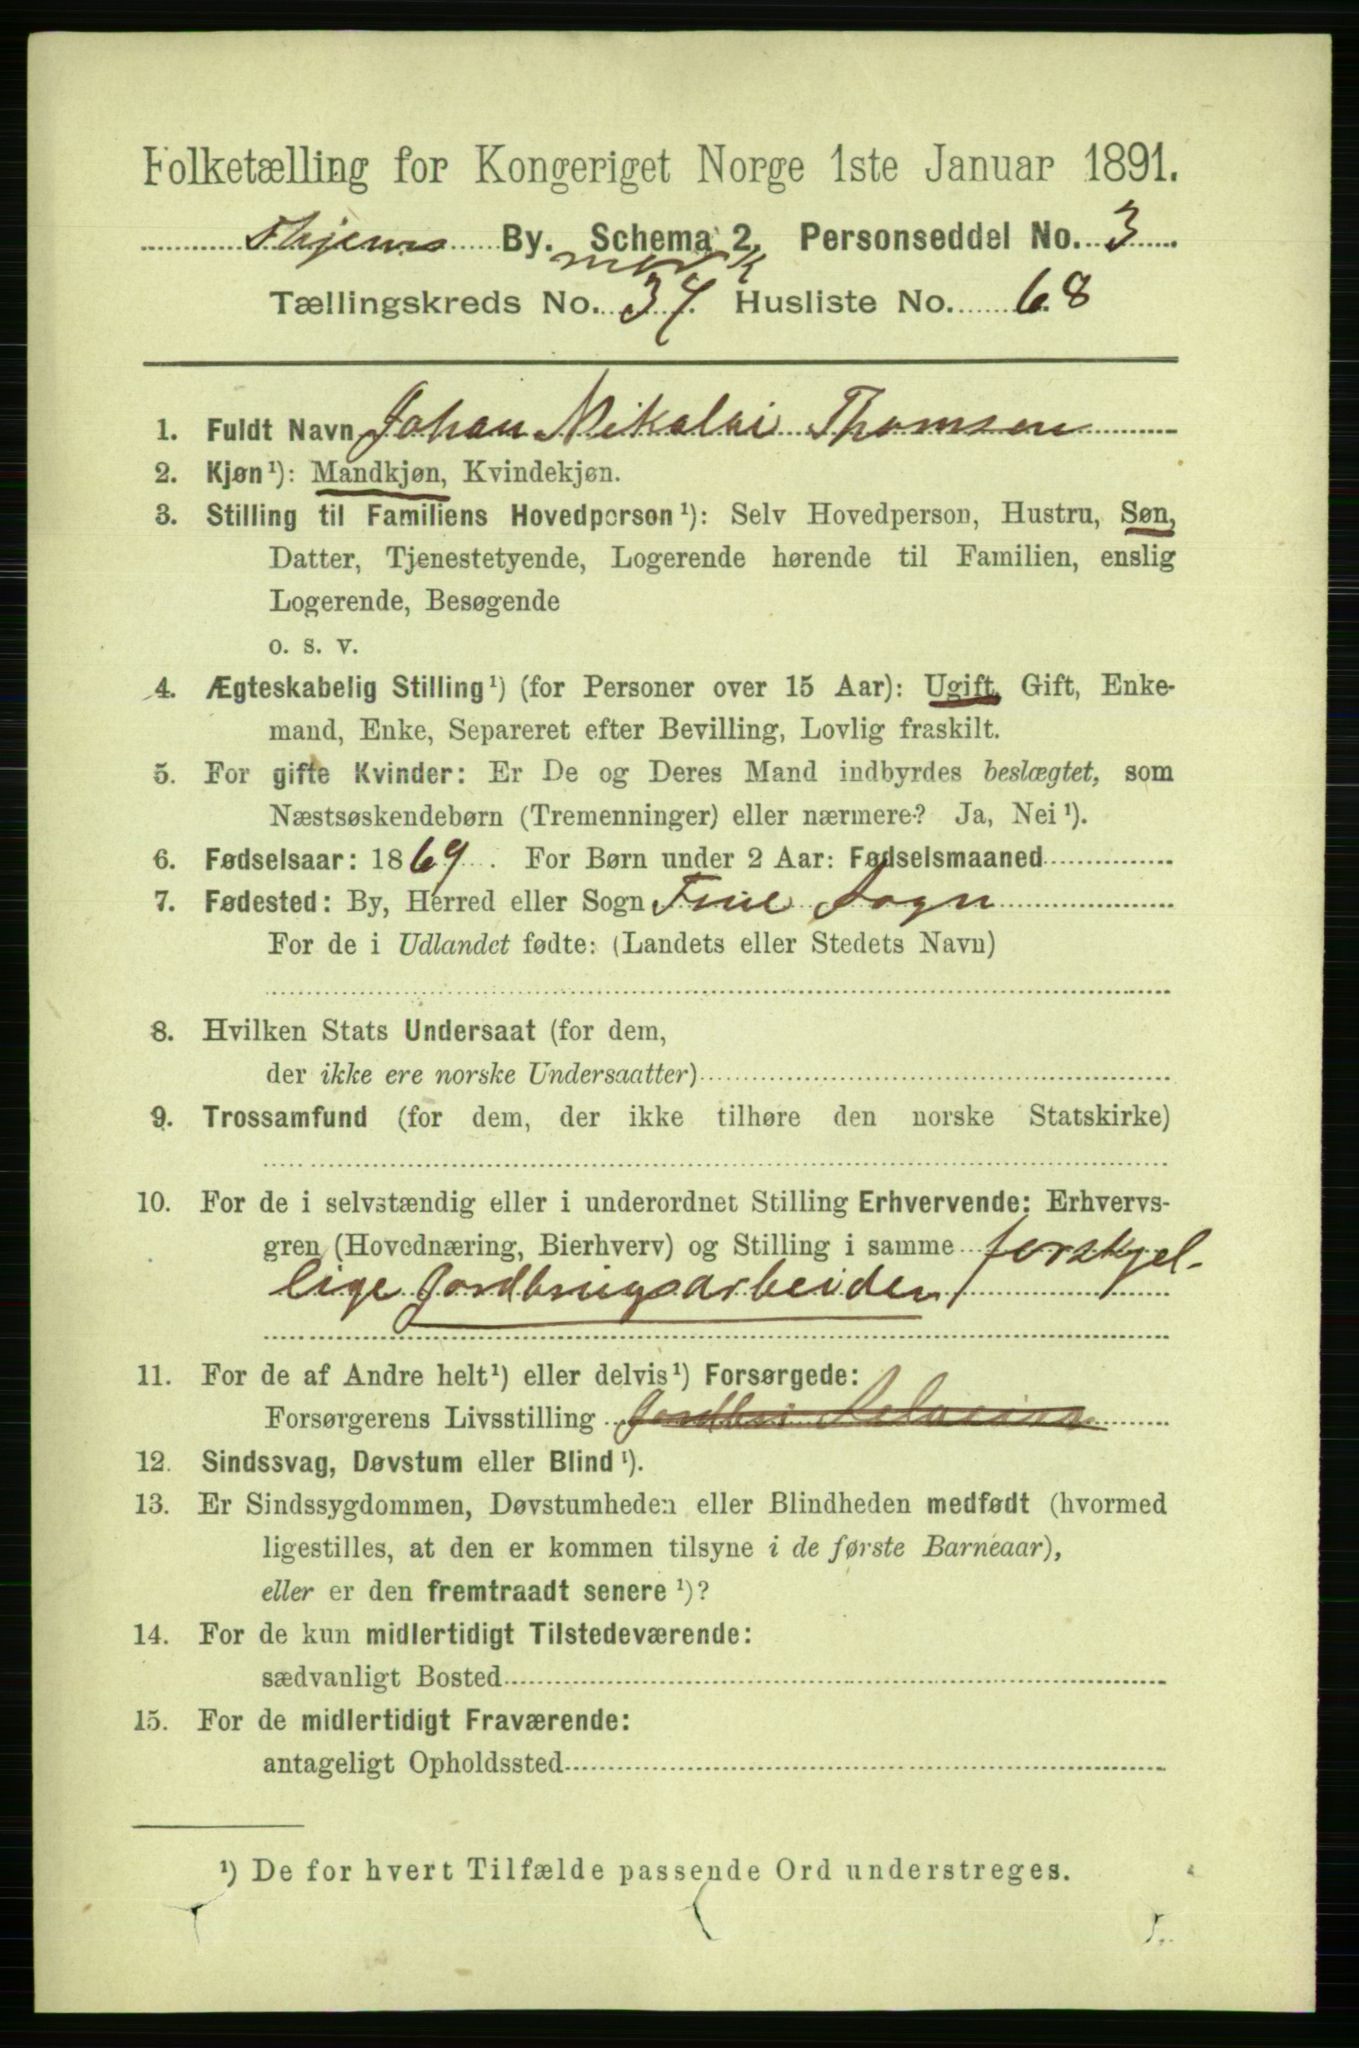 Folketælling for Kongeriget Norge 1ste Januar 1891.
Thjems By. Schema 2. Personseddel No. 3
mark
Tællingskreds No. 34. Husliste No. 68
1. Fuldt Navn Johan Nikolai Thomsen
2. Kjøn¹): Mandkjøn, Kvindekjøn.
3. Stilling til Familiens Hovedperson¹): Selv Hovedperson, Hustru, Søn,
Datter, Tjenestetyende, Logerende hørende til Familien, enslig
Logerende, Besøgende
o. s. v.
4. Ægteskabelig Stilling¹) (for Personer over 15 Aar): Ugift, Gift, Enke-
mand, Enke, Separeret efter Bevilling, Lovlig fraskilt.
5. For gifte Kvinder: Er De og Deres Mand indbyrdes beslægtet, som
Næstsøskendebørn (Tremenninger) eller nærmere? Ja, Nei¹).
6. Fødselsaar: 1869. For Børn under 2 Aar: Fødselsmaaned
7. Fødested: By, Herred eller Sogn Sogn
For de i Udlandet fødte: (Landets eller Stedets Navn)
8. Hvilken Stats Undersaat (for dem,
der ikke ere norske Undersaatter)
9. Trossamfund (for dem, der ikke tilhøre den norske Statskirke)
10. For de i selvstændig eller i underordnet Stilling Erhvervende: Erhvervs-
gren (Hovednæring, Bierhverv) og Stilling i samme forskjel-
lige Jordbrugsarbeider
11. For de af Andre helt¹) eller delvis¹) Forsørgede:
Forsørgerens Livsstilling
12. Sindssvag, Døvstum eller Blind¹).
13. Er Sindssygdommen, Døvstumheden eller Blindheden medfødt (hvormed
ligestilles, at den er kommen tilsyne i de første Barneaar),
eller er den fremtraadt senere¹)?
14. For de kun midlertidigt Tilstedeværende:
sædvanligt Bosted
15. For de midlertidigt Fraværende:
antageligt Opholdssted
¹) De for hvert Tilfælde passende Ord understreges.